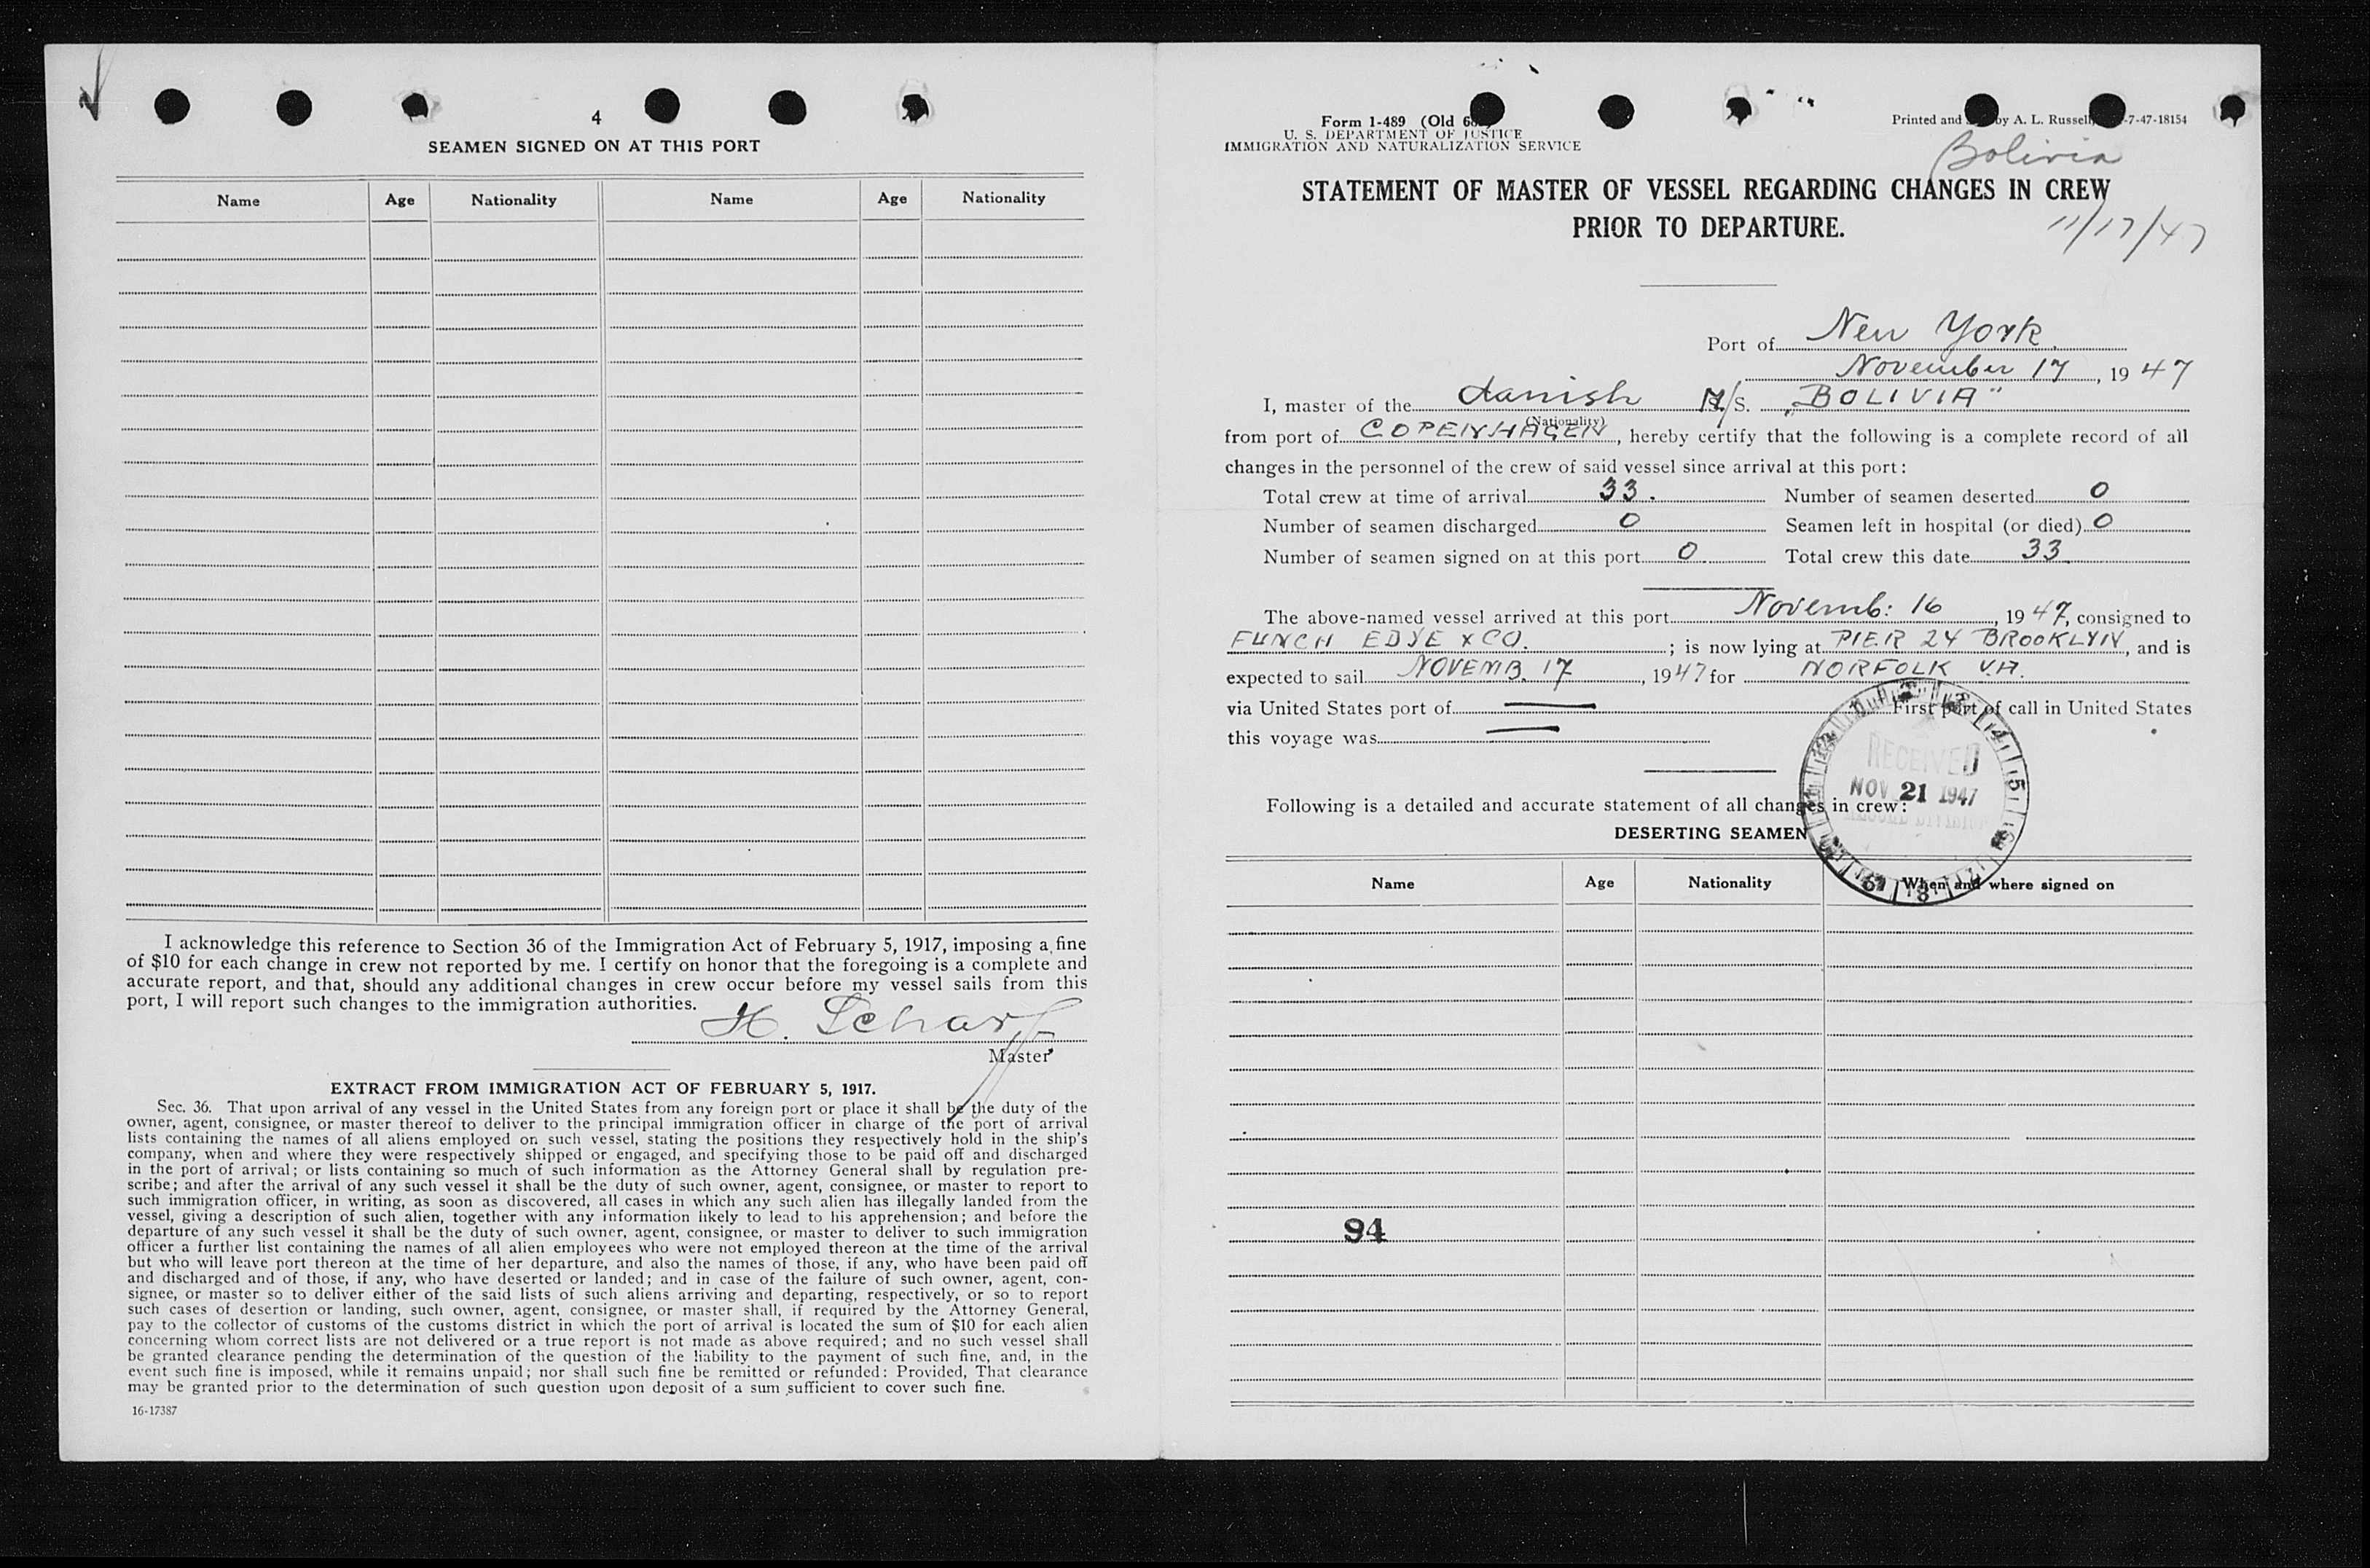 4
SEAMEN SIGNED ON AT THIS PORT
Name Age Nationality Name Age Nationality
I acknowledge this reference to Section 36 of the Immigration Act of February 5, 1917, imposing a fine
of $10 for each change in crew not reported by me. I certify on honor that the foregoing is a complete and
accurate report, and that, should any additional changes in crew occur before my vessel sails from this
port, I will report such changes to the immigration authorities.
H. Scharf
Master
EXTRACT FROM IMMIGRATION ACT OF FEBRUARY 5, 1917.
Sec. 36. That upon arrival of any vessel in the United States from any foreign port or place it shall be the duty of the
owner, agent, consignee, or master thereof to deliver to the principal immigration officer in charge of the port of arrival
lists containing the names of all aliens employed on such vessel, stating the positions they respectively hold in the ship's
company, when and where they were respectively shipped or engaged, and specifying those to be paid off and discharged
in the port of arrival; or lists containing so much of such information as the Attorney General shall by regulation pre-
scribe; and after the arrival of any such vessel it shall be the duty of such owner, agent, consignee, or master to report to
such immigration officer, in writing, as soon as discovered, all cases in which any such alien has illegally landed from the
vessel, giving a description of such alien, together with any information likely to lead to his apprehension; and before the
departure of any such vessel it shall be the duty of such owner, agent, consignee, or master to deliver to such immigration
officer a further list containing the names of all alien employees who were not employed thereon at the time of the arrival
but who will leave port thereon at the time of her departure, and also the names of those, if any, who have been paid off
and discharged and of those, if any, who have deserted or landed; and in case of the failure of such owner, agent, con-
signee, or master so to deliver either of the said lists of such aliens arriving and departing, respectively, or so to report
such cases of desertion or landing, such owner, agent, consignee, or master shall, if required by the Attorney General,
pay to the collector of customs of the customs district in which the port of arrival is located the sum of $10 for each alien
concerning whom correct lists are not delivered or a true report is not made as above required; and no such vessel shall
be granted clearance pending the determination of the question of the liability to the payment of such fine, and, in the
event such fine is imposed, while it remains unpaid; nor shall such fine be remitted or refunded: Provided, That clearance
may be granted prior to the determination of such question upon deposit of a sum sufficient to cover such fine.
16-17387
Form 1-489 (Old 6
U. S. DEPARTMENT OF JUSTICE
IMMIGRATION AND NATURALIZATION SERVICE
Printed and by A. L. Russell, -7-47-18154
Bolivia
STATEMENT OF MASTER OF VESSEL REGARDING CHANGES IN CREW
PRIOR TO DEPARTURE.
11/17/47
Port of New York.
November 17, 1947
I, master of the danish M/S. „BOLIVIA"
(Nationality)
from port of COPENHAGEN, hereby certify that the following is a complete record of all
changes in the personnel of the crew of said vessel since arrival at this port:
Total crew at time of arrival 33. Number of seamen deserted 0
Number of seamen discharged 0 Seamen left in hospital (or died) 0
Number of seamen signed on at this port 0 Total crew this date 33
The above-named vessel arrived at this port Novemb: 16, 1947, consigned to
FUNCH EDYE & CO.; is now lying at PIER 24 BROOKLYN, and is
expected to sail NOVEMB. 17, 1947 for NORFOLK VA.
via United States port of — First port of call in United States
this voyage was —
RECEIVED
NOV 21 1947
Following is a detailed and accurate statement of all changes in crew:
DESERTING SEAMEN
Name Age Nationality When and where signed on
94